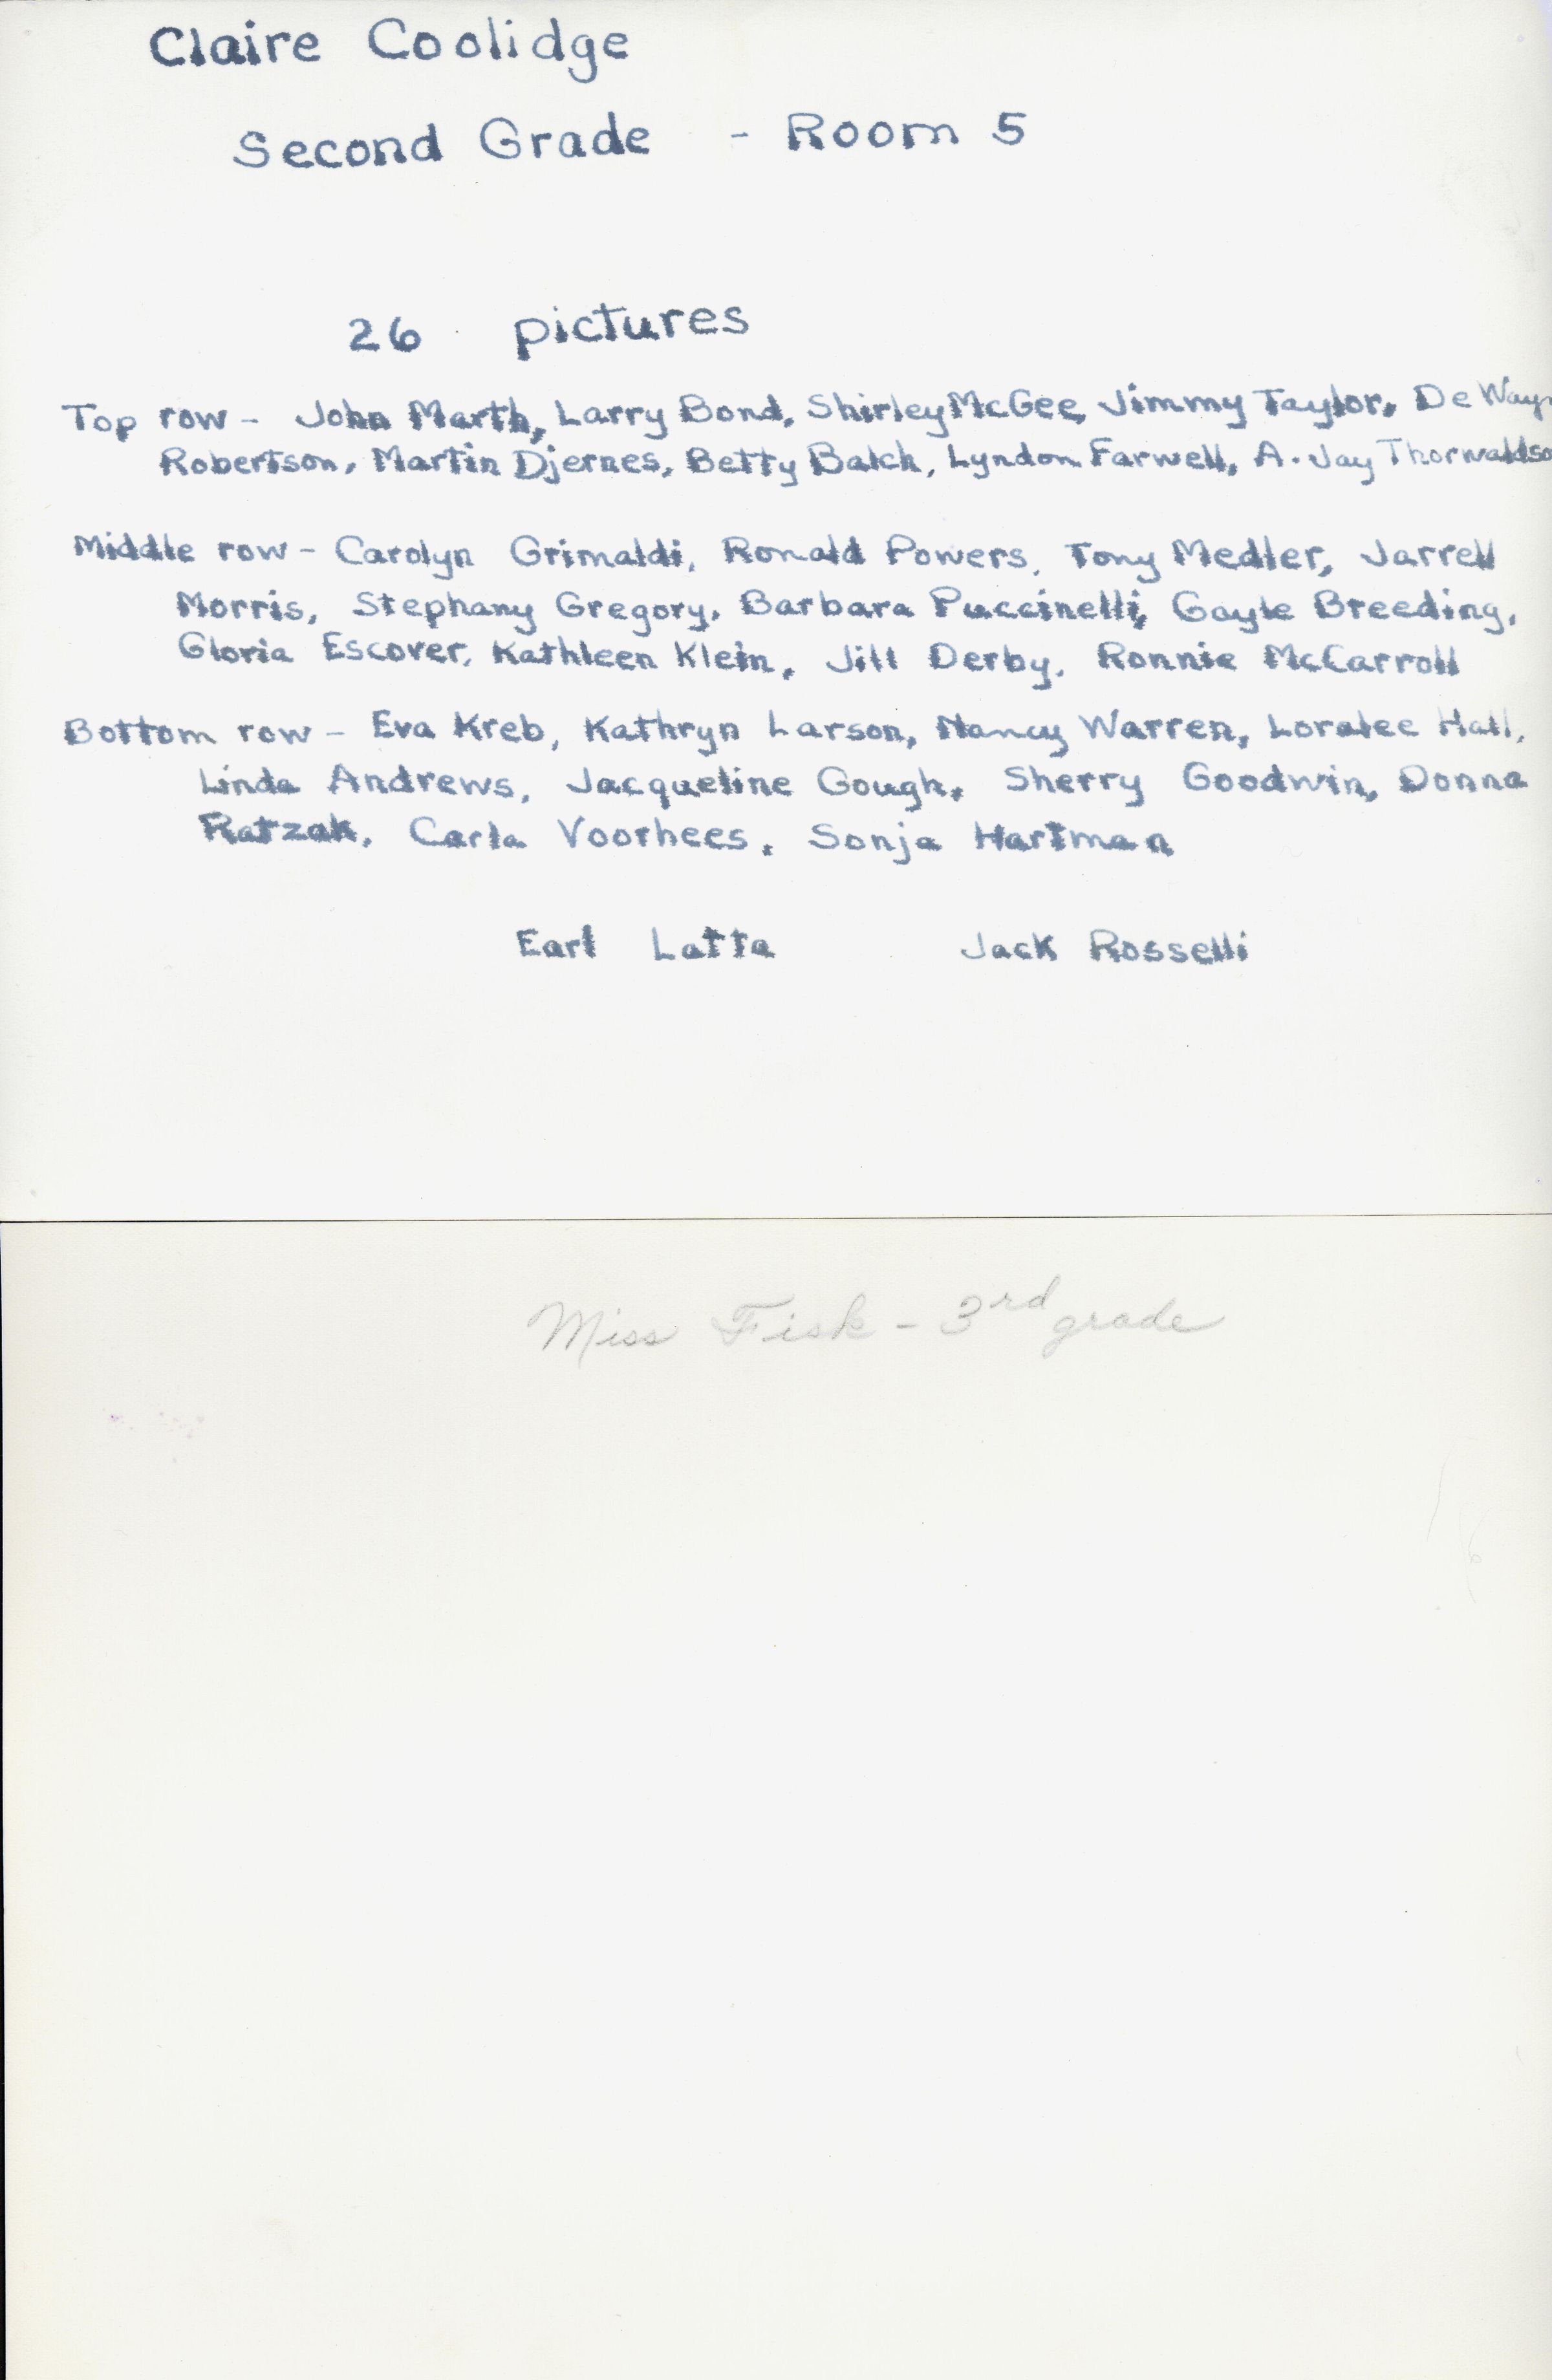 Claire Coolidge
Second Grade - Room 5
26 pictures
Top row - John Marth, Larry Bond, Shirley McGee, Jimmy Taylor, De Wayn
Robertson, Martin Djernes, Betty Balch, Lyndon Farwell, A. Jay Thorwaldso
Middle row - Carolyn Grimaldi, Ronald Powers, Tony Medler, Jarrell
Morris, Stephany Gregory, Barbara Puccinelli, Gayle Breeding,
Gloria Escover, Kathleen Klein, Jill Derby, Ronnie McCarroll
Bottom row - Eva Kreb, Kathryn Larson, Nancy Warren, Loralee Hall,
Linda Andrews, Jacqueline Gough, Sherry Goodwin, Donna
Ratzak, Carla Voorhees, Sonja Hartman
Earl Latta Jack Rosselli
Miss Fisk - 3rd grade